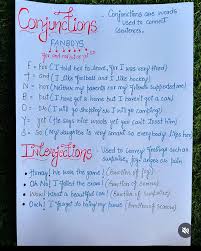 Conjunctions
- Conjunctions are words
used to connect
sentences.
FANBOYS
for and nor but or yet so
F - for (I told her to leave, for I was very tired)
A - and (I like football and I like hockey)
N - nor (Neither my parents nor my friends supported me)
B - but (I have got a home but I haven't got a car)
O - or (I will go shopping or I will go camping)
Y - yet (He says nice words yet you can't trust him)
S - so (My daughter is very smart so everybody likes her)
Interjections - Used to convey feelings such as
surprise, joy anger or pain
Hurray! We won the game! (Emotion of joy)
Oh No! I failed the exam! (Emotion of sorrow)
Wow! What a beautiful car! (Emotion of surprise)
Ouch! I forgot to bring my purse (Emotion of sorrow)